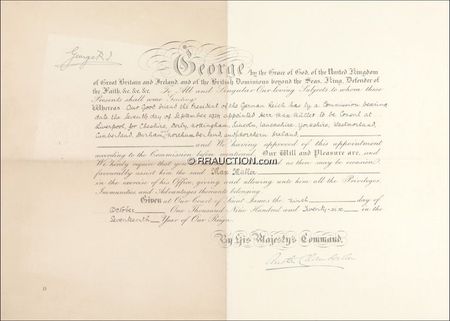 George R.I.
George, by the Grace of God, of the United Kingdom
of Great Britain and Ireland and of the British Dominions beyond the Seas, King, Defender of
the Faith, &c. &c. &c. To All and Singular Our loving Subjects to whom these
Presents shall come, Greeting:
Whereas Our Good Friend the President of the German Reich has by a Commission bearing
date the seventh day of September 1926 appointed Herr Max Müller to be Consul at
Liverpool, for Cheshire, Derby, Nottingham, Lincoln, Lancashire, Yorkshire, Westmorland,
Cumberland, Durham, Northumberland and Northern Ireland
and We having approved of this appointment
according to the Commission before mentioned, Our Will and Pleasure are, and
We hereby require that you do receive, countenance, and, as there may be occasion,
favourably assist him the said Max Müller
in the exercise of his Office, giving and allowing unto him all the Privileges,
Immunities and Advantages thereunto belonging.
Given at Our Court of Saint James, the day of
October, One Thousand Nine Hundred and Twenty-six in the
Seventeenth Year of Our Reign.
By His Majesty's Command.
Austen Chamberlain
© RRAUCTION.COM